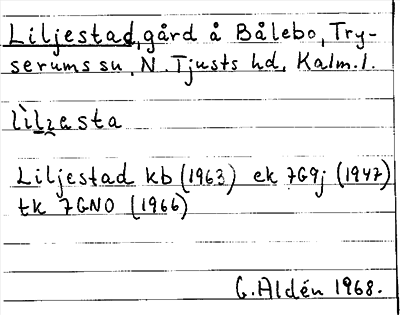 Liljestad, gård å Bålebo, Try-
serums sn, N. Tjusts hd, Kalm. l.
lìlɹesta
Liljestad kb (1963) ek 7G9j (1947)
tk 7GNO (1966)
G. Aldén 1968.